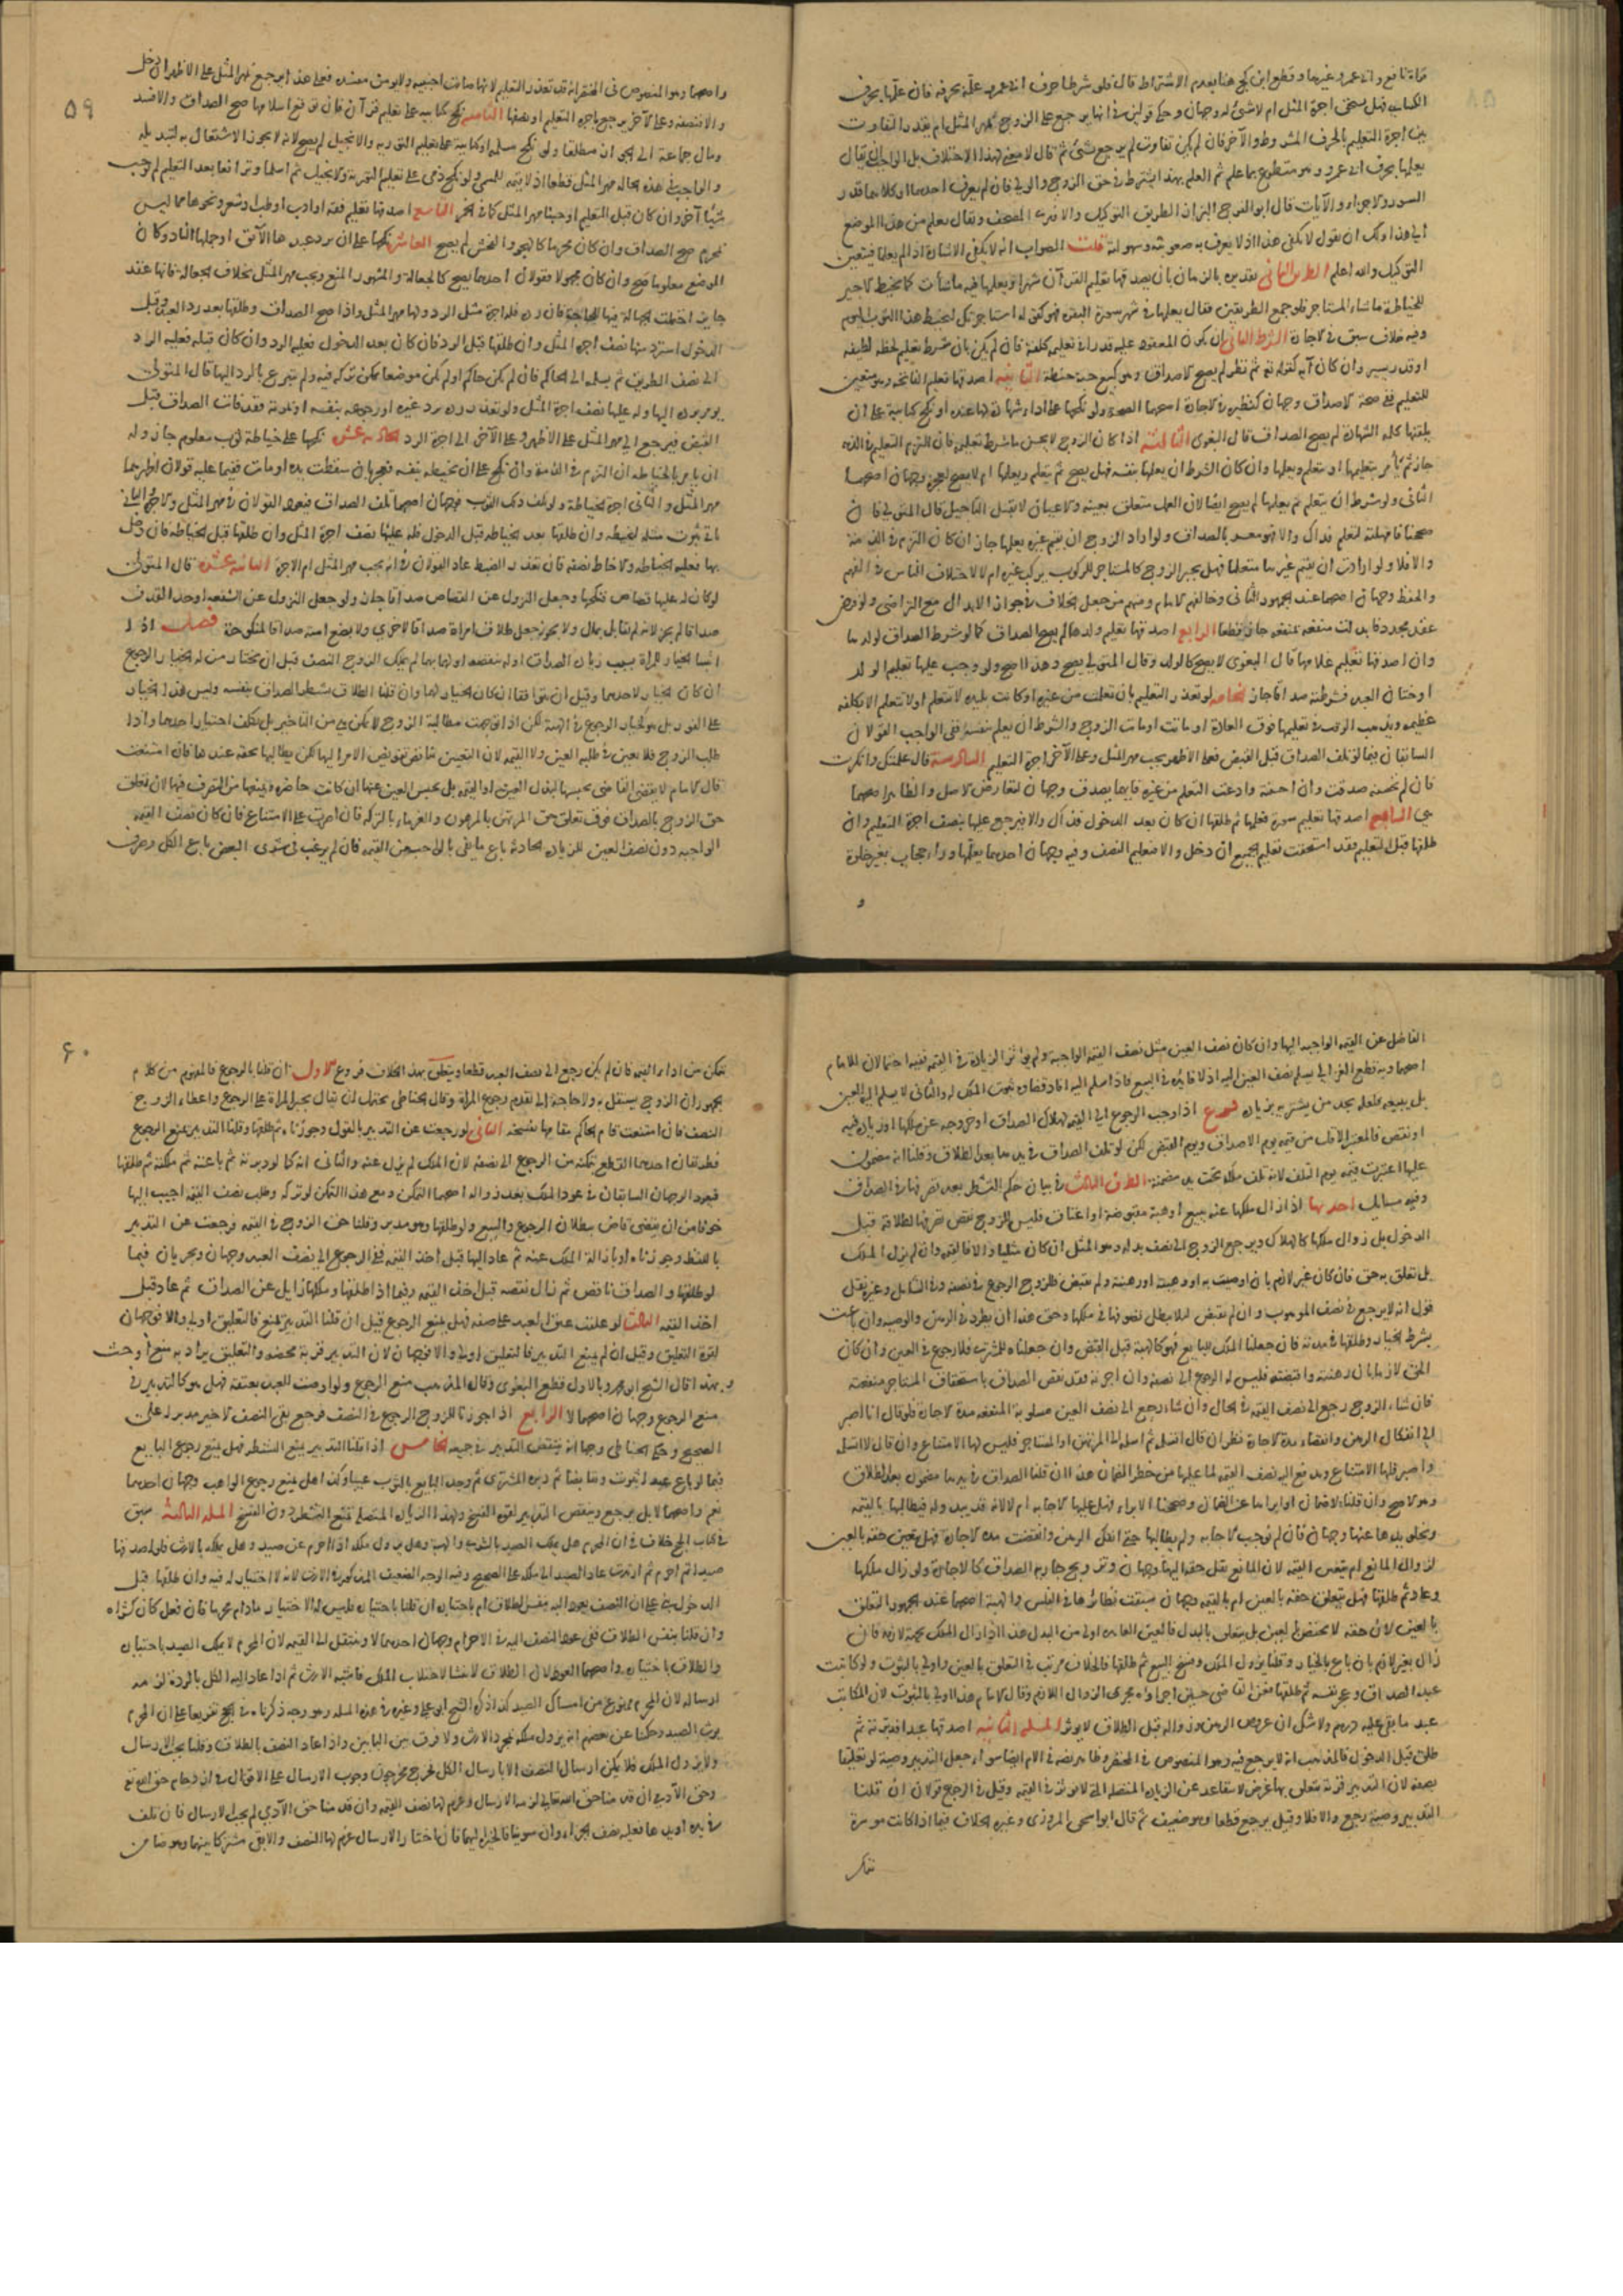 قراءة نافع وابي عمرو وغيرهما وقطع ابن كج هنا بعدم الاشتراط قال فلو شرطا حرف ابي عمرو علمه بحرفه فان علمها بحرف
الكسائي فهل يستحق اجرة المثل ام لا شيء له وجهان وحكى قولين في انها يرجع على الزوج بمهر المثل ام بقدر التفاوت
بين اجرة التعليم بالحرف المشروط والآخر فان لم يكن تفاوت لم يرجع بشيء ثم قال لا معنى لهذا الاختلاف بل الواجب ان يقال
يعلمها بحرف ابي عمرو وهو متطوع بما علم ثم العلم بهذا يشترط في حق الزوج والولي فان لم يعرف احدهما او كلاهما قدر
السور والاجزاء والآيات قال ابو الفرج البزاز الطريق التوكيل والا فيرى المصحف ويقال تعلم من هذا الموضع
الى هذا ولك ان تقول لا يكفي هذا اذ لا يعرف به صعوبته وسهولته قلت الصواب انه لا يكفي الاشارة اذا لم يعلما فيتعين
التوكيل والله اعلم الطريق الثاني تقديره بالزمان بان يصدقها تعليم القرآن شهرا ويعلمها فيه ما شاءت كما يخيط الاجير
للخياطة ما شاء المستاجر فلو جمع الطريقين فقال يعلمها في شهر سورة البقرة فهو كقوله استاجرتك لتخيط هذا الثوب اليوم
وفيه خلاف سبق في الاجارة الشرط الثاني ان يكون المعقود عليه قدرا في تعليمه كلفة فان لم يكن بان شرط تعليم لحظة لطيفة
او قدر يسير وان كان آية كقوله ثم نظر لم يصح الاصداق وهو كبيع حبة حنطة الثانية اصدقها تعليم الفاتحة وهو متعين
للتعليم ففي صحة الاصداق وجهان كنظيره في الاجارة اصحهما الصحة ولو نكحها على اداء شهادة لها عنده او نكح كتابية على ان
يلقنها كلمة الشهادة لم يصح الصداق قال البغوي الثالثة اذا كان الزوج لا يحسن ما شرط تعليمه فان التزم التعليم في الذمة
جاز ثم يأمر بتعليمها او يتعلم ويعلمها وان كان الشرط ان يعلمها بنفسه فهل يصح ثم يتعلم ويعلمها ام لا يصح لعجزه وجهان اصحهما
الثاني ولو شرط ان يتعلم ثم يعلمها لم يصح ايضا لان العمل متعلق بعينه والاعيان لا تقبل التأجيل قال المتولي فان
والا فلا ولو ارادت ان يقيم غيرها متعلما فهل يجبر الزوج كالمستاجر للركوب يركب غيره ام لا لاختلاف الناس في الفهم
والحفظ وجهان اصحهما عند الجمهور الثاني وخالفهم الامام ومنهم من جعل الخلاف في جواز الابدال مع التراضي
عقد مجدد قابلت منفعة بمنفعة جاز قطعا الرابع اصدقها تعليم ولدها لم يصح الصداق كما لو شرط الصداق لولدها
وان اصدقها تعليم غلامها قال البغوي لا يصح كالولد وقال المتولي يصح وهذا اصح ولو وجب عليها تعليم الولد
او ختان العبد فشرطته صداقا جاز الخامسة لو تعذر التعليم بان تعلمت من غيره او كانت بليدة لا تتعلم او لا تتعلم الا بكلفة
عظيمة ويذهب الوقت في تعليمها فوق العادة او ماتت او مات الزوج والشرط ان يعلم بنفسه ففي الواجب القولان
السابقان فيما لو تلف الصداق قبل القبض فعلى الاظهر يجب مهر المثل وعلى الآخر اجرة التعليم السادسة قال علمتك وانكرت
فان لم تحسنه صدقت وان احسنته وادعت التعلم من غيره فايهما يصدق وجهان لتعارض الاصل والظاهر اصحهما
هي السابعة اصدقها تعليم سورة فعلمها ثم طلقها ان كان بعد الدخول فذاك والا فيرجع عليها بنصف اجرة التعليم وان
طلقها قبل التعليم فقد استحقت تعليم الجميع ان دخل والا فتعليم النصف وفيه وجهان احدهما يعلمها وراء حجاب بغير خلوة
و
٥٩
واصحهما وهو المنصوص في المختصر انه قد تعذر التعليم لانها صارت اجنبية ولا يؤمن مفسدة فعلى هذا يرجع بمهر المثل على الاظهر ان دخل
والا فنصفه وعلى الآخر يرجع باجرة التعليم او نصفها الثامنة نكح كتابية على تعليم قرآن فان توقع اسلامها صح الصداق والا فسد
ومال جماعة الى الجواز مطلقا ولو نكح مسلمة او كتابية على تعليم التوراة والانجيل لم يصح لانه لا يجوز الاشتغال به لتبديله
والواجب في هذه الحالة مهر المثل قطعا اذ لا قيمة للمسمى ولو نكح ذمي على تعليم التورية والانجيل ثم اسلما وترافعا بعد التعليم لم نوجب
شيئا آخر وان كان قبل التعليم اوجبنا مهر المثل كما في الخمر التاسعة اصدقها تعليم فقه او ادب او طب او شعر ونحوها مما ليس
بمحرم صح الصداق وان كان محرما كالهجو والفحش لم يصح العاشرة نكحها على ان يرد عبدها الآبق او جملها الشارد وكان
الموضع معلوما صح وان كان مجهولا فقولان احدهما يصح كالجعالة والمشهور المنع ويجب مهر المثل بخلاف الجعالة فانها عقد
جائز احتملت الجهالة فيها للحاجة فان رده فله اجرة مثل الرد ولها مهر المثل واذا صح الصداق وطلقها بعد رد العبد وقبل
الدخول استرد منها نصف اجرة المثل وان طلقها قبل الرد فان كان بعد الدخول فعليه الرد وان كان قبله فعليه الرد
الى نصف الطريق ثم يسلمه الى الحاكم فان لم يكن حاكم او لم يكن موضعا يمكن تركه فيه ولم يتبرع بالرد اليها قال المتولي
يؤمر برده اليها وله عليها نصف اجرة المثل ولو تعذر رده برد غيره او رجوعه بنفسه او موته فقد فات الصداق قبل
القبض فيرجع الى مهر المثل على الاظهر وعلى الآخر الى اجرة الرد الحادية عشرة نكحها على خياطة ثوب معلوم جاز وله
ان يأمر بالخياطة ان التزم في الذمة وان نكح على ان يخيطه بنفسه فعجز بان سقطت يده او مات ففيما عليه قولان اظهرهما
مهر المثل والثاني اجرة الخياطة ولو تلف ذلك الثوب فوجهان اصحهما تلف الصداق فيعود القولان في مهر المثل والاجرة والثاني
يأتي بثوب مثله ليخيطه وان طلقها بعد الخياطة قبل الدخول فله عليها نصف اجرة المثل وان طلقها قبل الخياطة فان دخل
بها فعليه الخياطة والا خاط نصفه فان تعذر الضبط عاد القولان في انه يجب مهر المثل ام الاجرة الثانية عشرة قال المتولي
لو كان له عليها قصاص فنكحها وجعل النزول عن القصاص صداقا جاز ولو جعل النزول عن الشفعة او حد القذف
صداقا لم يجز لانه لم يقابل بمال ولا يجوز جعل طلاق امراة صداقا لاخرى ولا بضع امته صداقا لمنكوحة فصل اذا
اثبتنا الخيار للمراة بسبب زيادة الصداق او له بنقصه او لهما بهما لم يملك الزوج النصف قبل ان يختار من له الخيار الرجوع
ان كان الخيار لاحدهما وقبل ان يتوافقا ان كان الخيار لهما وان قلنا الطلاق يشطر الصداق بنفسه وليس هذا الخيار
على الفور بل هو كخيار الرجوع في الهبة لكن اذا توجهت مطالبة الزوج لا تمكن هي من التأخير بل تكلف اختيار احدهما واذا
طلب الزوج فلا يعين في طلبه العين ولا القيمة لان التعيين يناقض تفويض الامر اليها لكن يطالبها بحقه عندها فان امتنعت
قال الامام لا يقضي القاضي بحبسها لبذل العين او القيمة بل يحبس العين عنها ان كانت حاضرة ويمنعها من التصرف فيها لان تعلق
حق الزوج بالصداق فوق تعلق حق المرتهن بالمرهون والغرماء بالتركة فان اصرت على الامتناع فان كان نصف القيمة
الواجبة دون نصف العين للزيادة الحادثة باع ما يفي بالواجب من القيمة فان لم يرغب في شرى البعض باع الكل وصرف
الفاضل عن القيمة الواجبة اليها وان كان نصف العين مثل نصف القيمة الواجبة ولم تؤثر الزيادة في القيمة ففيه احتمالان للامام
اصحهما وبه قطع الغزالي يسلم نصف العين اليه اذ لا فائدة في البيع فاذا سلم اليه افاد قضاؤه ثبوت الملك له والثاني لا يسلم اليه العين
بل يبيعه فلعله يجد من يشتريه بزيادة فرع اذا وجب الرجوع الى القيمة لهلاك الصداق او خروجه عن ملكها او زيادة فيه
او نقص فالمعتبر الاقل من قيمة يوم الاصداق ويوم القبض لكن لو تلف الصداق في يدها بعد الطلاق وقلنا انه مضمون
عليها اعتبرت قيمة يوم التلف لانه تلف ملكه تحت يد مضمنة الطرف الثالث في بيان حكم التشطر بعد تصرفها في الصداق
وفيه مسائل احديها اذا زال ملكها عنه ببيع او هبة مقبوضة او اعتاق فليس للزوج نقض تصرفها لطلاقه قبل
الدخول بل زوال ملكها كالهلاك ويرجع الزوج الى نصف بدله وهو المثل ان كان مثليا والا فالقيمة وان لم يزل الملك
بل تعلق به حق فان كان غير لازم بان اوصت به او وهبته او رهنته ولم تقبض فللزوج الرجوع في نصفه وفي الشامل وغيره نقل
قول انه لا يرجع في نصف الموهوب وان لم يقبض لئلا يبطل تصرفها في ملكها وحق هذا ان يطرد في الرهن والوصية وان باعت
بشرط الخيار وطلقها في مدته فان جعلنا الملك للبايع فهو كالهبة قبل القبض وان جعلناه للمشتري فلا رجوع في العين وان كان
الحق لازما بان رهنته واقبضته فليس له الرجوع الى نصفه وان اجرته فقد نقص الصداق باستحقاق المستاجر منفعته
فان شاء الزوج رجع الى نصف القيمة في الحال وان شاء رجع الى نصف العين مسلوبة المنفعة مدة الاجارة فلو قال انا اصبر
الى انفكاك الرهن وانقضاء مدة الاجارة نظر ان قال اتسلمه ثم اسلمه الى المرتهن او المستاجر فليس لها الامتناع وان قال لا اتسلمه
واصبر فلها الامتناع ويدفع اليه نصف القيمة لما عليها من خطر الضمان هذا ان قلنا الصداق في يدها مضمون بعد الطلاق
وهو الاصح وان قلنا لا ضمان او ابراها عن الضمان وصححنا الابراء فهل عليها الاجابة ام لا لانه قد يبدو له فيطالبها بالقيمة
وتخلو يدها عنها وجهان فان لم نوجب الاجابة ولم يطالبها حتى انفك الرهن وانقضت مدة الاجارة فهل يتعين حقه بالعين
لزوال المانع ام يتعين القيمة لان المانع نقل حقه اليها وجهان وتزويج جارية الصداق كالاجارة ولو زال ملكها
وعاد ثم طلقها فهل يتعلق حقه بالعين ام بالقيمة وجهان سبقت نظائرها في الفلس والهبة اصحهما عند الجمهور التعلق
بالعين لان حقه لا يختص بالعين بل يتعلق بالبدل فالعين العائدة اولى من البدل هذا اذا زال الملك بجهة لازمة فان
زال بغير لازم بان باع بالخيار وقلنا يزول الملك وفسخ البيع ثم طلقها فالخلاف مرتب في التعلق بالعين واولى بالثبوت ولو كاتبت
عبد الصداق وعجز نفسه ثم طلقها فعن القاضي حسين اجراؤه مجرى الزوال اللازم وقال الامام هذا اولى بالثبوت لان المكاتب
عبد ما بقي عليه درهم ولا شك ان عروض الرهن وزواله قبل الطلاق لا يؤثر المسألة الثانية اصدقها عبدا فدبرته ثم
طلق قبل الدخول فالمذهب انه لا يرجع فيه وهو المنصوص في المختصر وظاهر نصه في الام ايضا سواء جعل التدبير وصية او تعليقا
بصفة لان التدبير قربة يتعلق بها غرض لا يتقاعد عن الزيادة المتصلة التي لا تؤثر في القيمة وقيل في الرجوع قولان ان قلنا
التدبير وصية رجع والا فلا وقيل يرجع قطعا وهو ضعيف ثم قال ابو اسحق المروزي وغيره الخلاف فيما اذا كانت موسرة
تتمكن
٦٠
تتمكن من اداء القيمة فان لم يكن رجع الى نصف العبد قطعا ويتعلق بهذا الخلاف فروع الاول ان قلنا بالرجوع فالمفهوم من كلام
الجمهور ان الزوج يستقل به ولا حاجة الى تقدم رجوع المراة وقال الحناطي يحتمل ان يقال يجبر المراة على الرجوع واعطاء الزوج
النصف فان امتنعت قام الحاكم مقامها بفسخه الثاني لو رجعت عن التدبير بالقول وجوزناه ثم طلقها وقلنا التدبير يمنع الرجوع
فطريقان احدهما القطع بتمكنه من الرجوع الى نصفه لان الملك لم يزل عنه والثاني انه كما لو دبرته ثم باعته ثم ملكته ثم طلقها
فيعود الوجهان السابقان في عود الملك بعد زواله اصحهما التمكن ومع هذا التمكن لو تركه وطلب نصف القيمة اجيب اليها
خوفا من ان يقضي قاض ببطلان الرجوع والبيع ولو طلقها وهو مدبر وقلنا حق الزوج في القيمة فرجعت عن التدبير
باللفظ وجوزناه او بازالة الملك عنه ثم عاد اليها قبل اخذ القيمة ففي الرجوع الى نصف العبد وجهان ويجريان فيما
لو طلقها والصداق ناقص ثم زال نقصه قبل اخذ القيمة وفيما اذا طلقها وملكها زايل عن الصداق ثم عاد قبل
اخذ القيمة الثالث لو علقت عتق العبد على صفة فهل يمنع الرجوع قيل ان قلنا التدبير يمنع فالتعليق اولى والا فوجهان
لقوة التعليق وقيل ان لم يمنع التدبير فالتعليق اولى والا فوجهان لان التدبير قربة محضة والتعليق يراد به منع او حث
وبهذا قال الشيخ ابو محمد وبالاول قطع البغوي وقال المذهب منع الرجوع ولو اوصت للعبد بعتقه فهل هو كالتدبير في
منع الرجوع وجهان اصحهما لا الرابع اذا جوزنا للزوج الرجوع في النصف فرجع بقي النصف الآخر مدبرا على
الصحيح وحكى الحناطي وجها انه ينتقض التدبير في جميعه الخامس اذا قلنا التدبير يمنع التشطر فهل يمنع رجوع البايع
فيما لو باع عبدا بثوب وتقابضا ثم دبره المشتري ثم وجد البايع بالثوب عيبا وكذا هل يمنع رجوع الواهب وجهان احدهما
نعم واصحهما لا بل يرجع وينقض التدبير لقوة الفسخ ولهذا الزيادة المتصلة تمنع التشطر دون الفسخ المسألة الثالثة سبق
في كتاب الحج خلاف في ان المحرم هل يملك الصيد بالشراء والهبة وهل يزول ملكه اذا احرم عن صيد وهل يملكه بالارث فلو اصدقها
صيدا ثم احرم ثم ارتدت عاد الصيد الى ملكه على الصحيح وفيه الوجه الضعيف المذكور في الارث لانه لا اختيار له فيه وان طلقها قبل
الدخول بني على ان النصف يعود اليه بنفس الطلاق ام باختياره ان قلنا باختياره فليس له الاختيار ما دام محرما فان فعل كان كشرائه
وان قلنا بنفس الطلاق ففي عود النصف اليه في الاحرام وجهان احدهما لا وينتقل الى القيمة لان المحرم لا يملك الصيد باختياره
والطلاق باختياره واصحهما العود لان الطلاق لا ينشأ لاجتلاب الملك فاشبه الارث ثم اذا عاد اليه الكل بالردة لزمه
ارساله لان المحرم ممنوع من امساك الصيد كذا ذكره الشيخ ابو علي وغيره في هذه المسألة وهو وجه ذكرناه في الحج تفريعا على ان المحرم
يرث الصيد وحكينا عن بعضهم انه يزول ملكه بمجرد الارث ولا فرق بين البابين واذا عاد النصف بالطلاق وقلنا يجب الارسال
ولا يزول الملك فلا يمكن ارسال النصف الا بارسال الكل فخرج مخرجون وجوب الارسال على الاقوال في ازدحام حق الله تع
وحق الآدمي ان قدمنا حق الله تعالى لزمه الارسال وغرم لها نصف القيمة وان قدمنا حق الآدمي لم يجب الارسال فان تلف
في يده او يدها فعليه نصف الجزاء وان سوينا فالخيرة اليهما فان اختارا الارسال غرم لها النصف والا بقي مشتركا بينهما وهو ضامن